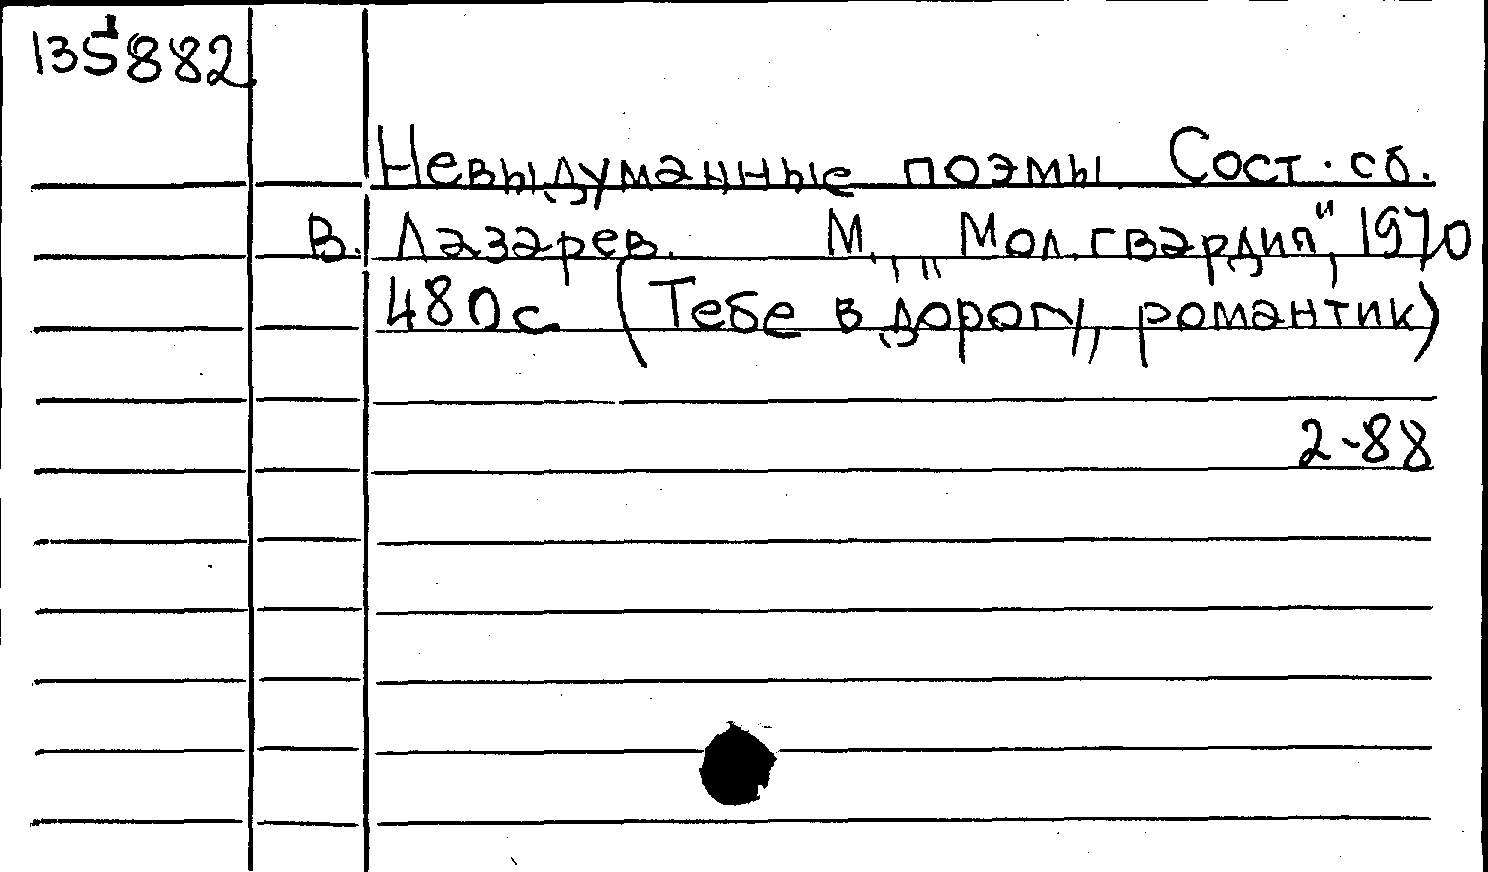 135882
Невыдуманные поэмы. Сост. сб.
В. Лазарев. М., „Мол. гвардия", 1970
480 с (Тебе в дорогу, романтик)
2-88